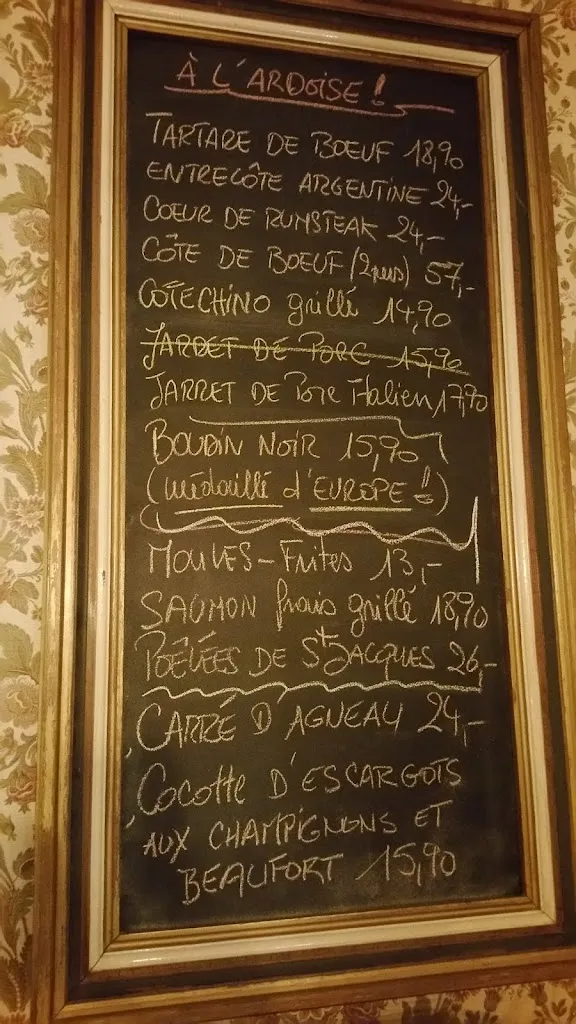 À L'ARDOISE !
TARTARE DE BOEUF 18,90
ENTRECÔTE ARGENTINE 24,-
COEUR DE RUMSTEAK 24,-
CÔTE DE BOEUF (2 pers) 57,-
COTECHINO grillé 14,90
JARRET DE PORC 15,90
JARRET DE Porc Italien 17,90
BOUDIN NOIR 15,90
(médaillé d'EUROPE !)
MOULES-Frites 13,-
SAUMON frais grillé 18,90
POÊLÉES DE St JACQUES 26,-
CARRÉ D'AGNEAU 24,-
Cocotte D'ESCARGOTS
AUX CHAMPIGNONS ET
BEAUFORT 15,90